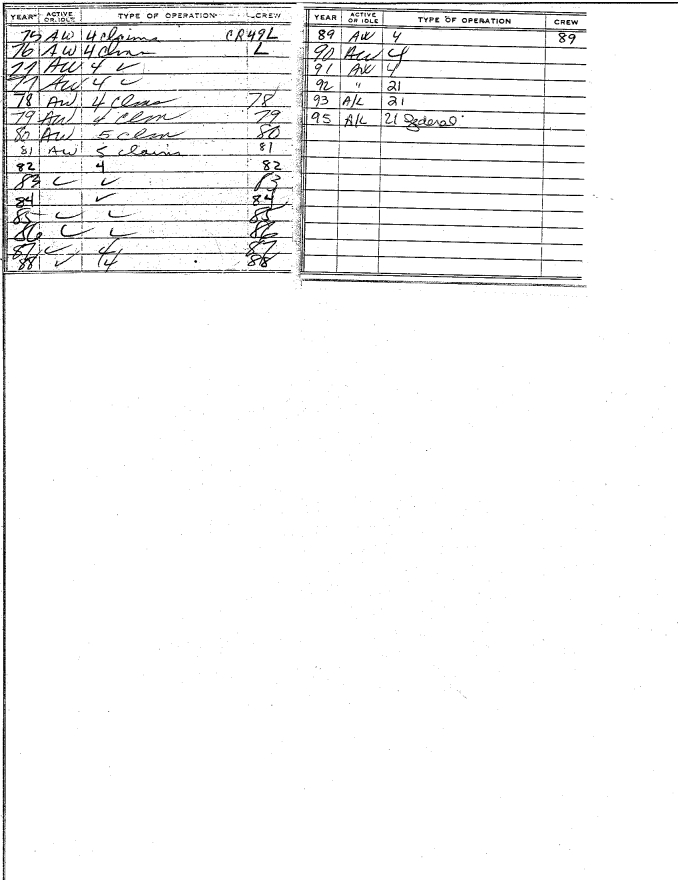 YEAR ACTIVE OR IDLE TYPE OF OPERATION CREW
75 AW 4 Claims CR49L
76 AW 4 Clms L
77 AW 4 ✓
77 AW 4 ✓
78 AW 4 Clms 78
79 AW 4 Clm 79
80 AW 5 Clm 80
81 AW 5 claims 81
82 4 82
83 ✓ ✓ 83
84 ✓ 84
85 ✓ ✓ 85
86 ✓ ✓ 86
87 ✓ 4 87
88 ✓ 4 88
YEAR ACTIVE OR IDLE TYPE OF OPERATION CREW
89 AW 4 89
90 AW 4
91 AW 4
92 " 21
93 A/L 21
95 A/L 21 Federal